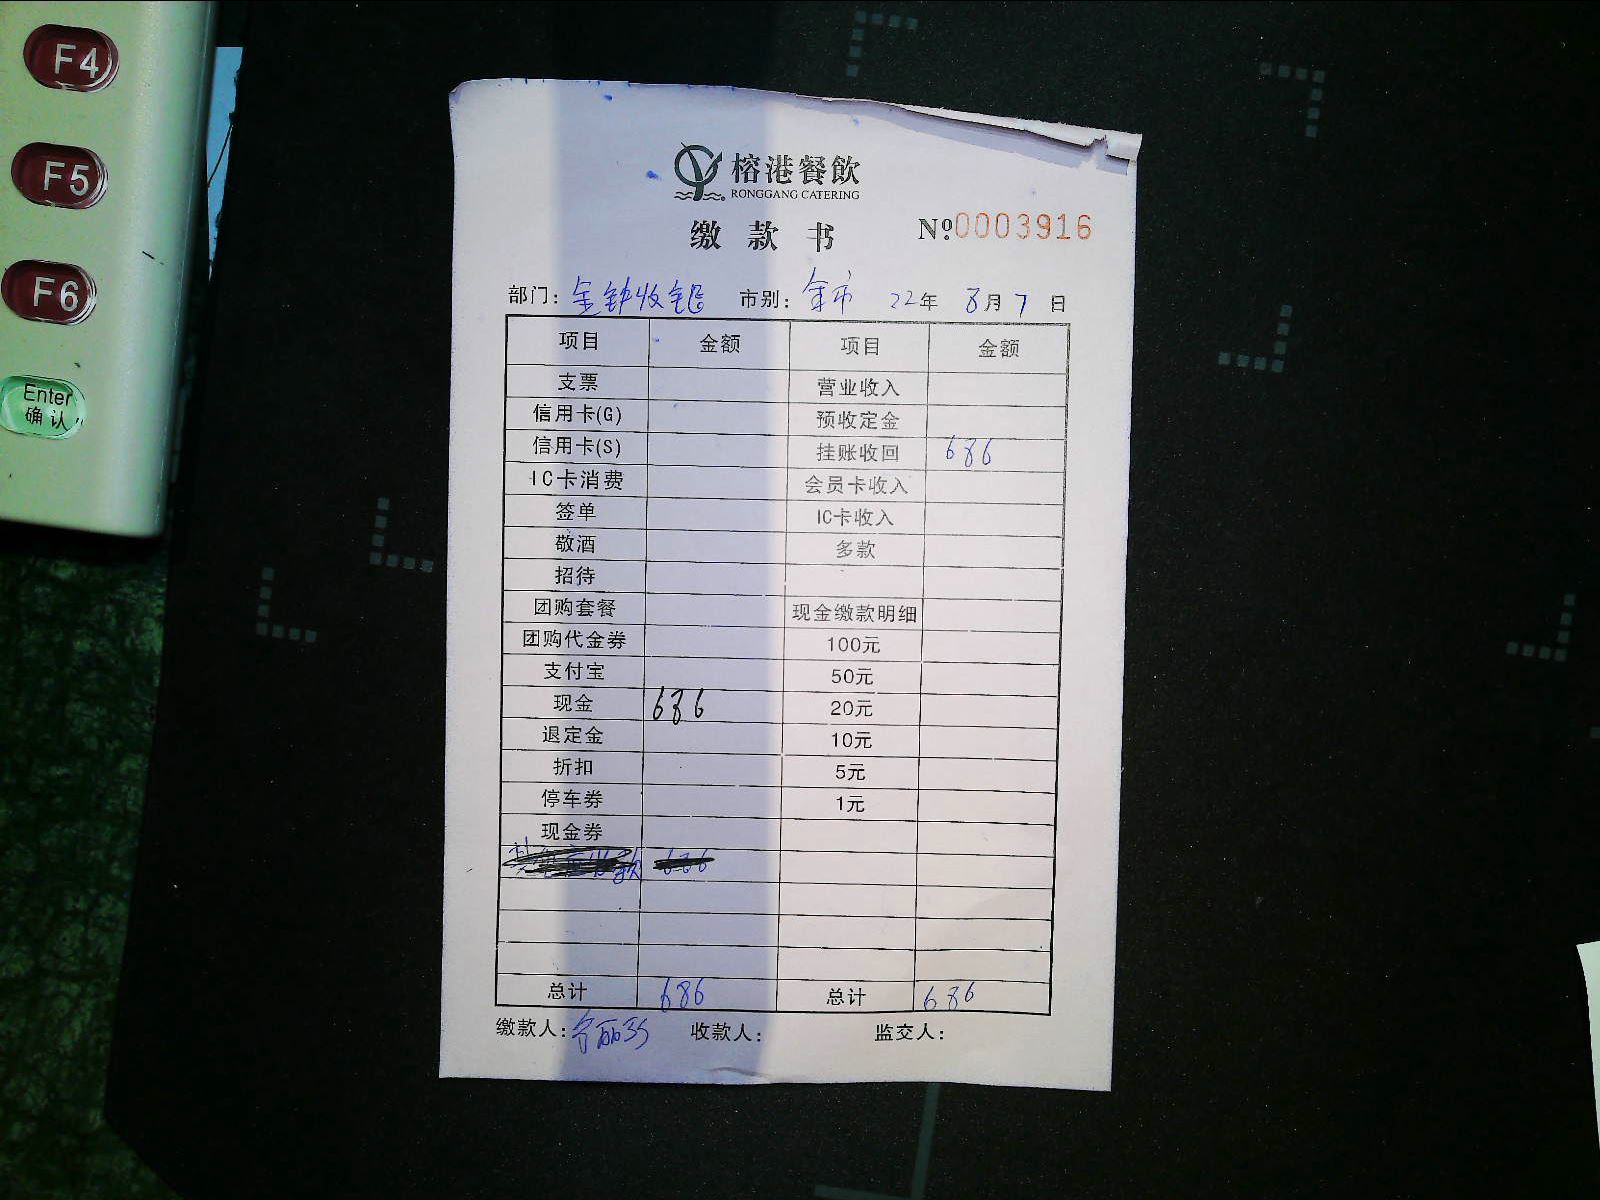 F4
F5
F6
Enter
确认
榕港餐飲
RONGGANG CATERING
缴款书 №0003916
部门: 金钟收银 市别: 全市 22年 8月 7日
项目 金额 项目 金额
支票 营业收入
信用卡(G) 预收定金
信用卡(S) 挂账收回 686
IC卡消费 会员卡收入
签单 IC卡收入
敬酒 多款
招待
团购套餐 现金缴款明细
团购代金券 100元
支付宝 50元
现金 686 20元
退定金 10元
折扣 5元
停车券 1元
现金券
686
总计 686 总计 686
缴款人: 收款人: 监交人: